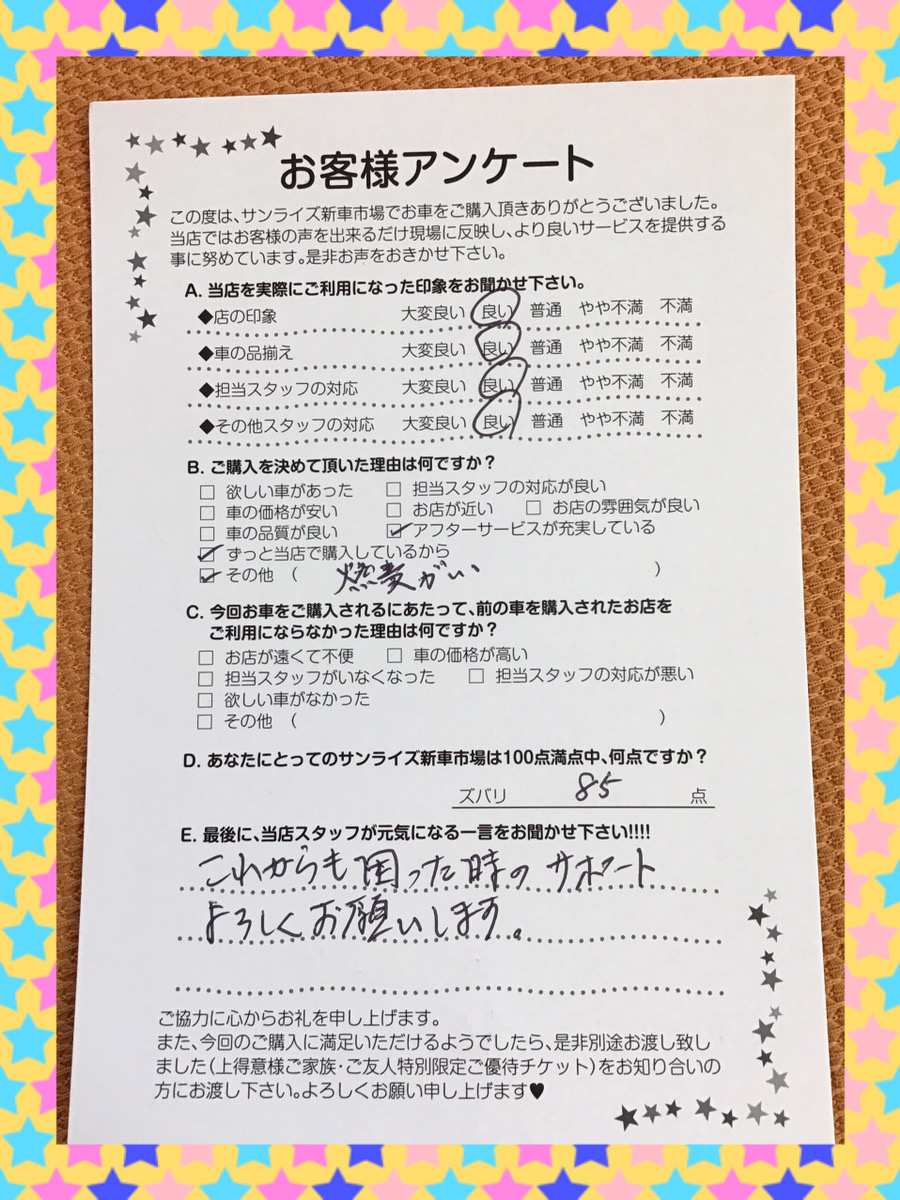 お客様アンケート
この度は、サンライズ新車市場でお車をご購入頂きありがとうございました。
当店ではお客様の声を出来るだけ現場に反映し、より良いサービスを提供する
事に努めています。是非お声をおきかせ下さい。
A. 当店を実際にご利用になった印象をお聞かせ下さい。
◆店の印象 大変良い 良い 普通 やや不満 不満
◆車の品揃え 大変良い 良い 普通 やや不満 不満
◆担当スタッフの対応 大変良い 良い 普通 やや不満 不満
◆その他スタッフの対応 大変良い 良い 普通 やや不満 不満
B. ご購入を決めて頂いた理由は何ですか？
□ 欲しい車があった □ 担当スタッフの対応が良い
□ 車の価格が安い □ お店が近い □ お店の雰囲気が良い
□ 車の品質が良い ☑ アフターサービスが充実している
☑ ずっと当店で購入しているから
☑ その他 （ 燃費がいい ）
C. 今回お車をご購入されるにあたって、前の車を購入されたお店を
ご利用にならなかった理由は何ですか？
□ お店が遠くて不便 □ 車の価格が高い
□ 担当スタッフがいなくなった □ 担当スタッフの対応が悪い
□ 欲しい車がなかった
□ その他 （ ）
D. あなたにとってのサンライズ新車市場は100点満点中、何点ですか？
ズバリ 85 点
E. 最後に、当店スタッフが元気になる一言をお聞かせ下さい!!!!
これからも困った時のサポート
よろしくお願いします。
ご協力に心からお礼を申し上げます。
また、今回のご購入に満足いただけるようでしたら、是非別途お渡し致し
ました（上得意様ご家族・ご友人特別限定ご優待チケット）をお知り合いの
方にお渡し下さい。よろしくお願い申し上げます♥